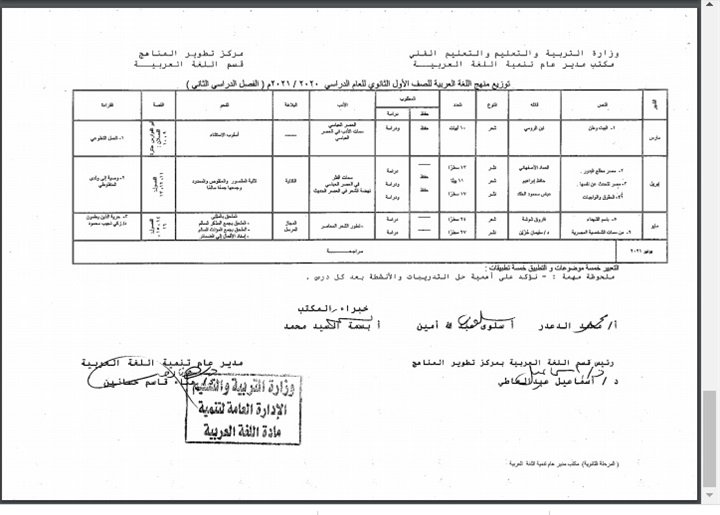 وزارة التربية والتعليم والتعليم الفني
مكتب مدير عام تنمية اللغة العربية
مركز تطوير المناهج
قسم اللغة العربية
توزيع منهج اللغة العربية للصف الأول الثانوي للعام الدراسي ٢٠٢٠ / ٢٠٢١م ( الفصل الدراسي الثاني )
الشهر النص قائله النوع العدد المطلوب الأدب البلاغة النحو القصة القراءة
حفظ دراسة
مارس ١- البيت وطن ابن الرومي شعر ١٠ أبيات حفظ ودراسة
العصر العباسي
سمات الأدب في العصر
العباسي
أسلوب الاستثناء
١- العمل التطوعي
إبريل
١- مصر مطلع البدور . العماد الأصفهاني نثر ٢٣ سطرًا دراسة
٢- مصر تتحدث عن نفسها. حافظ إبراهيم شعر ١٦ بيتًا حفظ ودراسة
٣- الحقوق والواجبات عباس محمود العقاد نثر دراسة
سمات النثر
في العصر العباسي
نهضة الشعر في العصر الحديث
الكناية
تثنية المقصور والمنقوص والممدود
وجمعها جمعًا سالمًا
٢- وصية إلى ولدي
للمنفلوطي
مايو
٥- باسم الشهداء فاروق شوشة شعر ٢٤ سطرًا دراسة
٦- من سمات الشخصية المصرية د/ سليمان حزين نثر ٢٧ سطرًا دراسة
- تطور الشعر المعاصر
المجاز
المرسل
- الملحق بالمثنى
- الملحق بجمع المذكر السالم
- الملحق بجمع المؤنث السالم
- إسناد الأفعال إلى الضمائر
٣- حرية الذين يعلمون
د/ زكي نجيب محمود
يونيو ٢٠٢١ مراجعة
التعبير خمسة موضوعات و التطبيق خمسة تطبيقات :
ملحوظة مهمة : - نؤكد على أهمية حل التدريبات والأنشطة بعد كل درس .
خبراء المكتب
أ/ محمد الدعدر أ سلوى عبد الله أمين أ بسمة السيد محمد
رئيس قسم اللغة العربية بمركز تطوير المناهج
د / اسماعيل عبدالعاطي
مدير عام تنمية اللغة العربية
قاسم حسانين
وزارة التربية والتعليم
الإدارة العامة لتنمية
مادة اللغة العربية
( المرحلة الثانوية) مكتب مدير عام تنمية اللغة العربية